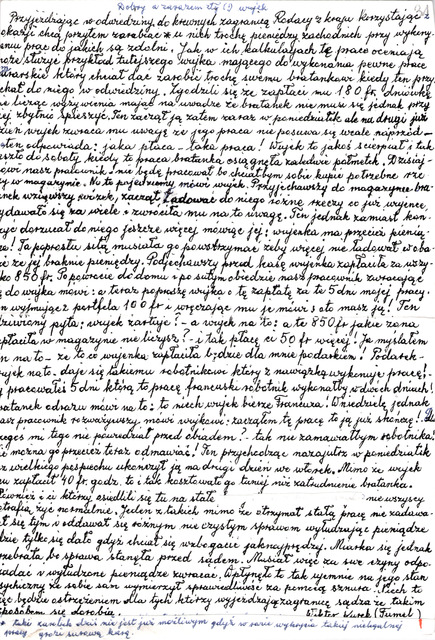 Dobry a zarazem zły (!) wujek
Przyjeżdżając w odwiedziny do krewnych zagranicą Rodacy z kraju korzystając z
okazji chcą przytem zarabiać u nich trochę pieniędzy zachodnich przy wykony-
waniu prac do jakich są zdolni. Jak w ich kalkulacjach tę pracę oceniają
służy przykład tutejszego wujka mającego do wykonania pewne prace
malarskie który chciał dać zarobić trochę swemu bratankowi kiedy ten przy
chał do niego w odwiedziny. Zgodzili się że zapłaci mu 180 fr. dniówkę
nie biorąc wyżywienia mając na uwadze że bratanek nie musi się jednak przy
tej zbytnio śpieszyć. Ten zaczął ją zatem zaraz w poniedziałek ale na drugi już
dzień wujek zwraca mu uwagę że jego praca nie posuwa się wcale naprzód
ten odpowiada: jaka płaca - taka praca! Wujek to jakoś ścierpiał i tak
szło do soboty kiedy to praca bratanka osiągnęła zaledwie półmetek. Dzisiaj
mówi nasz pracownik - nie będę pracował bo chciałbym sobie kupić potrzebne rze
czy w magazynie. No to pojedziemy mówi wujek. Przyjechawszy do magazynu bra-
tanek wziąwszy wózek, zaczął ładować do niego różne rzeczy co już wujence
wydawało się za wiele i zwróciła mu na to uwagę. Ten jednak zamiast kon.
dorzucał do niego jeszcze więcej mówiąc jej: wujenka ma przecież pienią-
dze! To poprostu siłą musiała go powstrzymać żeby więcej nie ładował w oba-
wie że jej braknie pieniędzy. Podjechawszy przed kasę wujenka zapłaciła za wszy-
tko 850 fr. Po powrocie do domu i po sutym obiedzie nasz pracownik zwracając
się do wujka mówi: a teraz poproszę wujka o tę zapłatę za te 5 dni mojej pracy.
wyjmując z portfela 100 fr i wręczając mu je mówi: oto masz ją! Ten
zdziwiony pyta: wujek żartuje? - a wujek na to: a te 850 fr jakie żona
zapłaciła w magazynie nie liczysz? - i tak płacę ci 50 fr więcej! Ja myślałem
ten na to - że to co wujenka zapłaciła będzie dla mnie podarkiem! Podarek -
wujek na to - daje się takiemu robotnikowi który z nawiązką wykonuje pracę! -
Ty pracowałeś 5 dni którą to pracę francuski robotnik wykonałby w dwóch dniach!
bratanek odrazu mówi na to: to niech wujek bierze Francuza! W niedzielę jednak
nasz pracownik rozważywszy, mówi wujkowi: zacząłem tę pracę to ją już skończę!
czegoś mi tego nie powiedział przed obiadem? - tak nu zamawiałbym robotnika!
nie można go przecież teraz odmawiać! Ten przychodząc nazajutrz w poniedziałek
z wielkiego pośpiechu ukończył ją na drugi dzień we wtorek. Mimo że wujek
mu zapłacił 40 fr. godz. to i tak kosztowało go taniej niż zatrudnienie bratanka.
Również i ci którzy osiedlili się tu na stałe nie wszyscy
potrafią żyć normalnie. Jeden z takich mimo że otrzymał stałą pracę nie zadawa-
lał się tym i oddawał się różnym nie czystym sprawom wyłudzając pieniądze
gdzie tylko się dało gdyż chciał się wzbogacić jaknajprędzej. Miarka się jednak
przebrała bo sprawa stanęła przed sądem. Musiał więc za swe czyny odpo-
wiadać i wyłudzone pieniądze zwracać. Wpłynęło to tak ujemnie na jego stan
psychiczny że sobie sam wymierzył sprawiedliwość za pomocą sznura. Niech to
jego będzie ostrzeżeniem dla tych którzy wyjeżdżają zagranicę sądząc że takim
sposobem się dorobią. Wiktor Kurek (Tunel)
taki zarobek dziś nie jest już możliwym gdyż w razie wykrycia takiej nielegalnej
pracy grożą surowe kary.